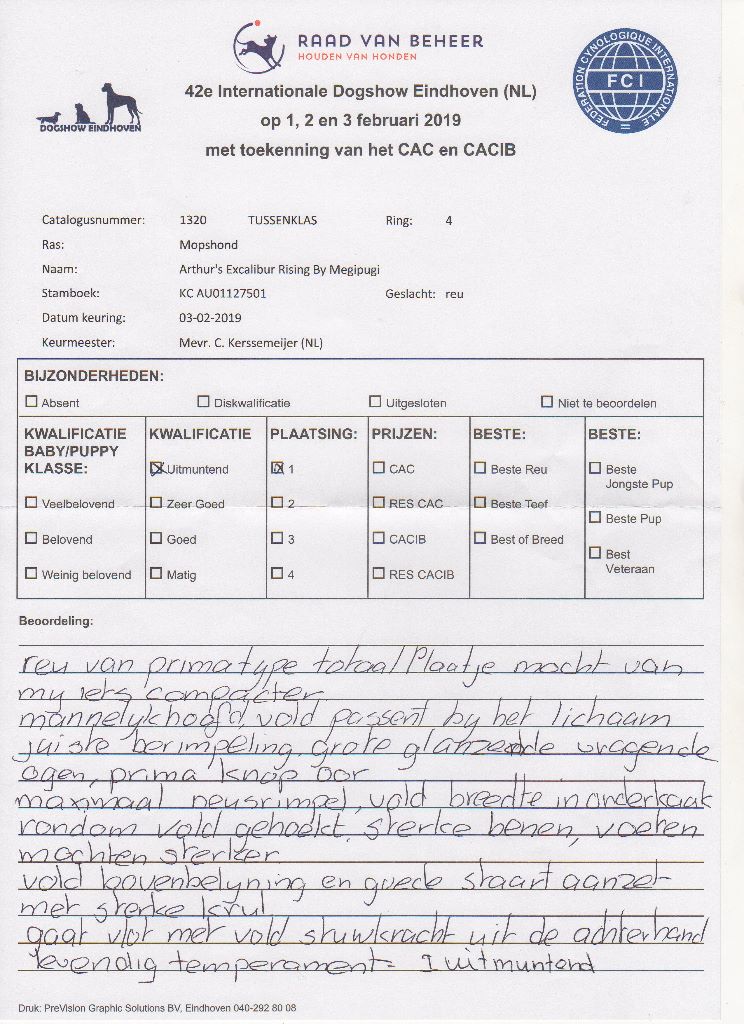 RAAD VAN BEHEER
HOUDEN VAN HONDEN
FEDERATION CYNOLOGIQUE INTERNATIONALE
FCI
DOGSHOW EINDHOVEN
42e Internationale Dogshow Eindhoven (NL)
op 1, 2 en 3 februari 2019
met toekenning van het CAC en CACIB
Catalogusnummer: 1320 TUSSENKLAS Ring: 4
Ras: Mopshond
Naam: Arthur's Excalibur Rising By Megipugi
Stamboek: KC AU01127501 Geslacht: reu
Datum keuring: 03-02-2019
Keurmeester: Mevr. C. Kerssemeijer (NL)
BIJZONDERHEDEN:
Absent Diskwalificatie Uitgesloten Niet te beoordelen
KWALIFICATIE
BABY/PUPPY
KLASSE:
Veelbelovend
Belovend
Weinig belovend
KWALIFICATIE
Uitmuntend
Zeer Goed
Goed
Matig
PLAATSING:
1
2
3
4
PRIJZEN:
CAC
RES CAC
CACIB
RES CACIB
BESTE:
Beste Reu
Beste Teef
Best of Breed
BESTE:
Beste
Jongste Pup
Beste Pup
Best
Veteraan
Beoordeling:
reu van prima type totaal Plaatje mocht van
my iets compacter
mannelyk hoofd, vold passent by het lichaam
juiste berimpeling, grote glanzende vragende
ogen, prima knop oor
maximaal neusrimpel, vold breedte in onderkaak
rondom vold gehoekt, sterke benen, voeten
mochten sterker
vold bovenbelyning en goede staart aanzet
met sterke krul
gaat vlot met vold stuwkracht uit de achterhand
levendig temperament = 1 uitmuntend
Druk: PreVision Graphic Solutions BV, Eindhoven 040-292 80 08